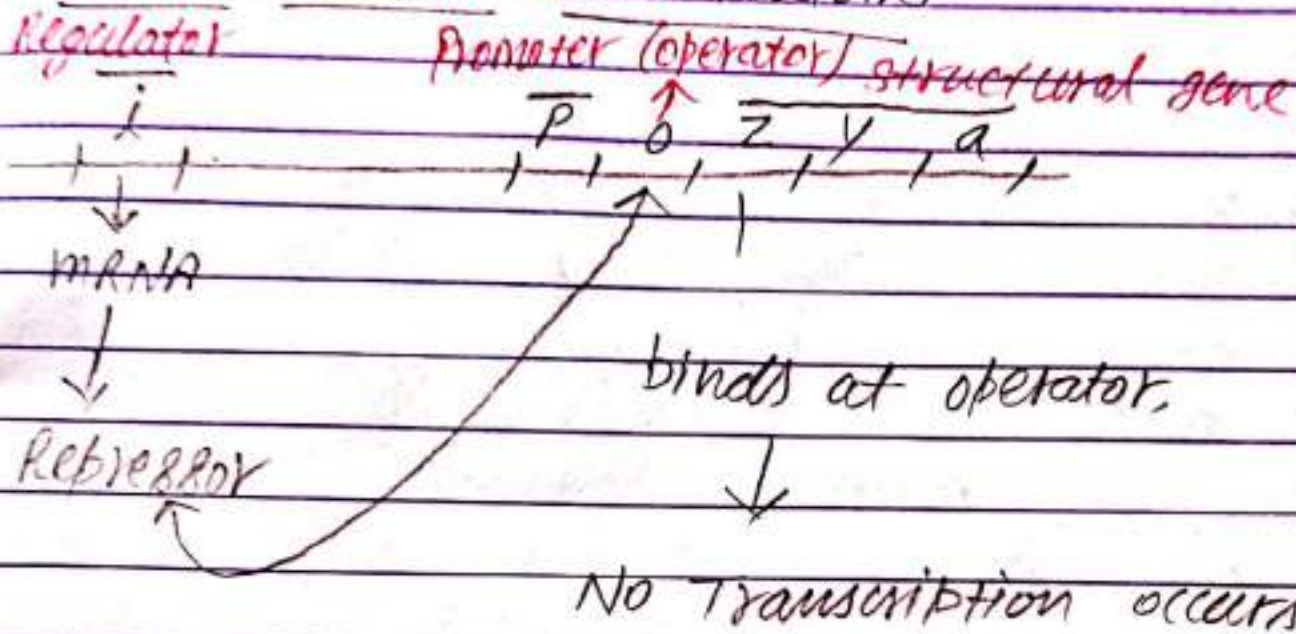 Regulator Promoter (operator) structural gene
i P o z y a
mRNA
binds at operator.
Repressor
No Transcription occurs